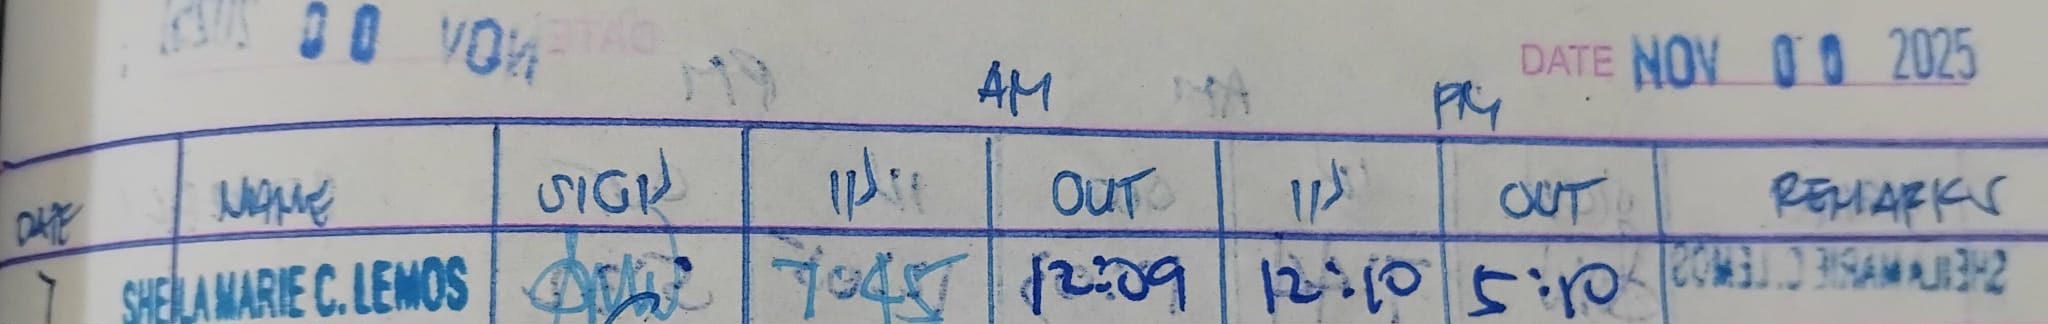 DATE NOV 00 2025
AM PM
DATE NAME SIGN IN OUT IN OUT REMARKS
7 SHEILA MARIE C. LEMOS 7:45 12:09 12:10 5:10